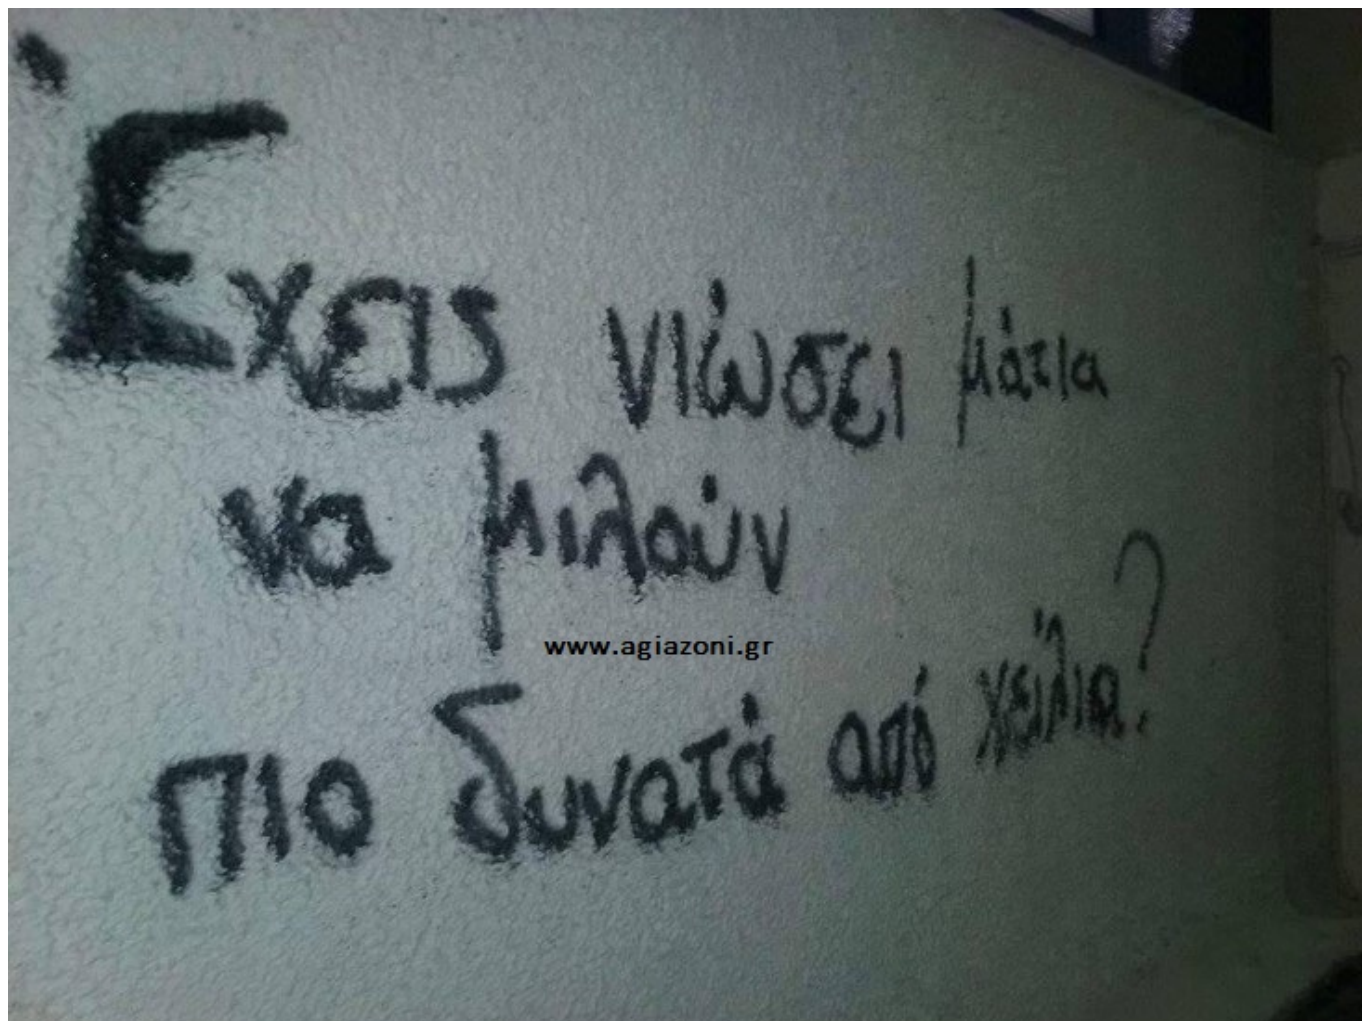 Έχεις νιώσει μάτια
να μιλούν
www.agiazoni.gr
πιο δυνατά από χείλια?